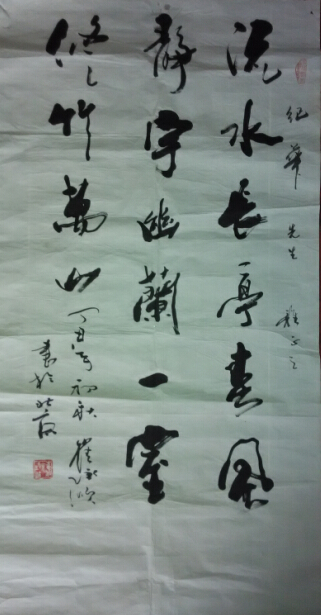 纪華先生 雅正之
流水長亭春風
静宇幽蘭一室
修竹萬山 丁丑年初秋
書於北京